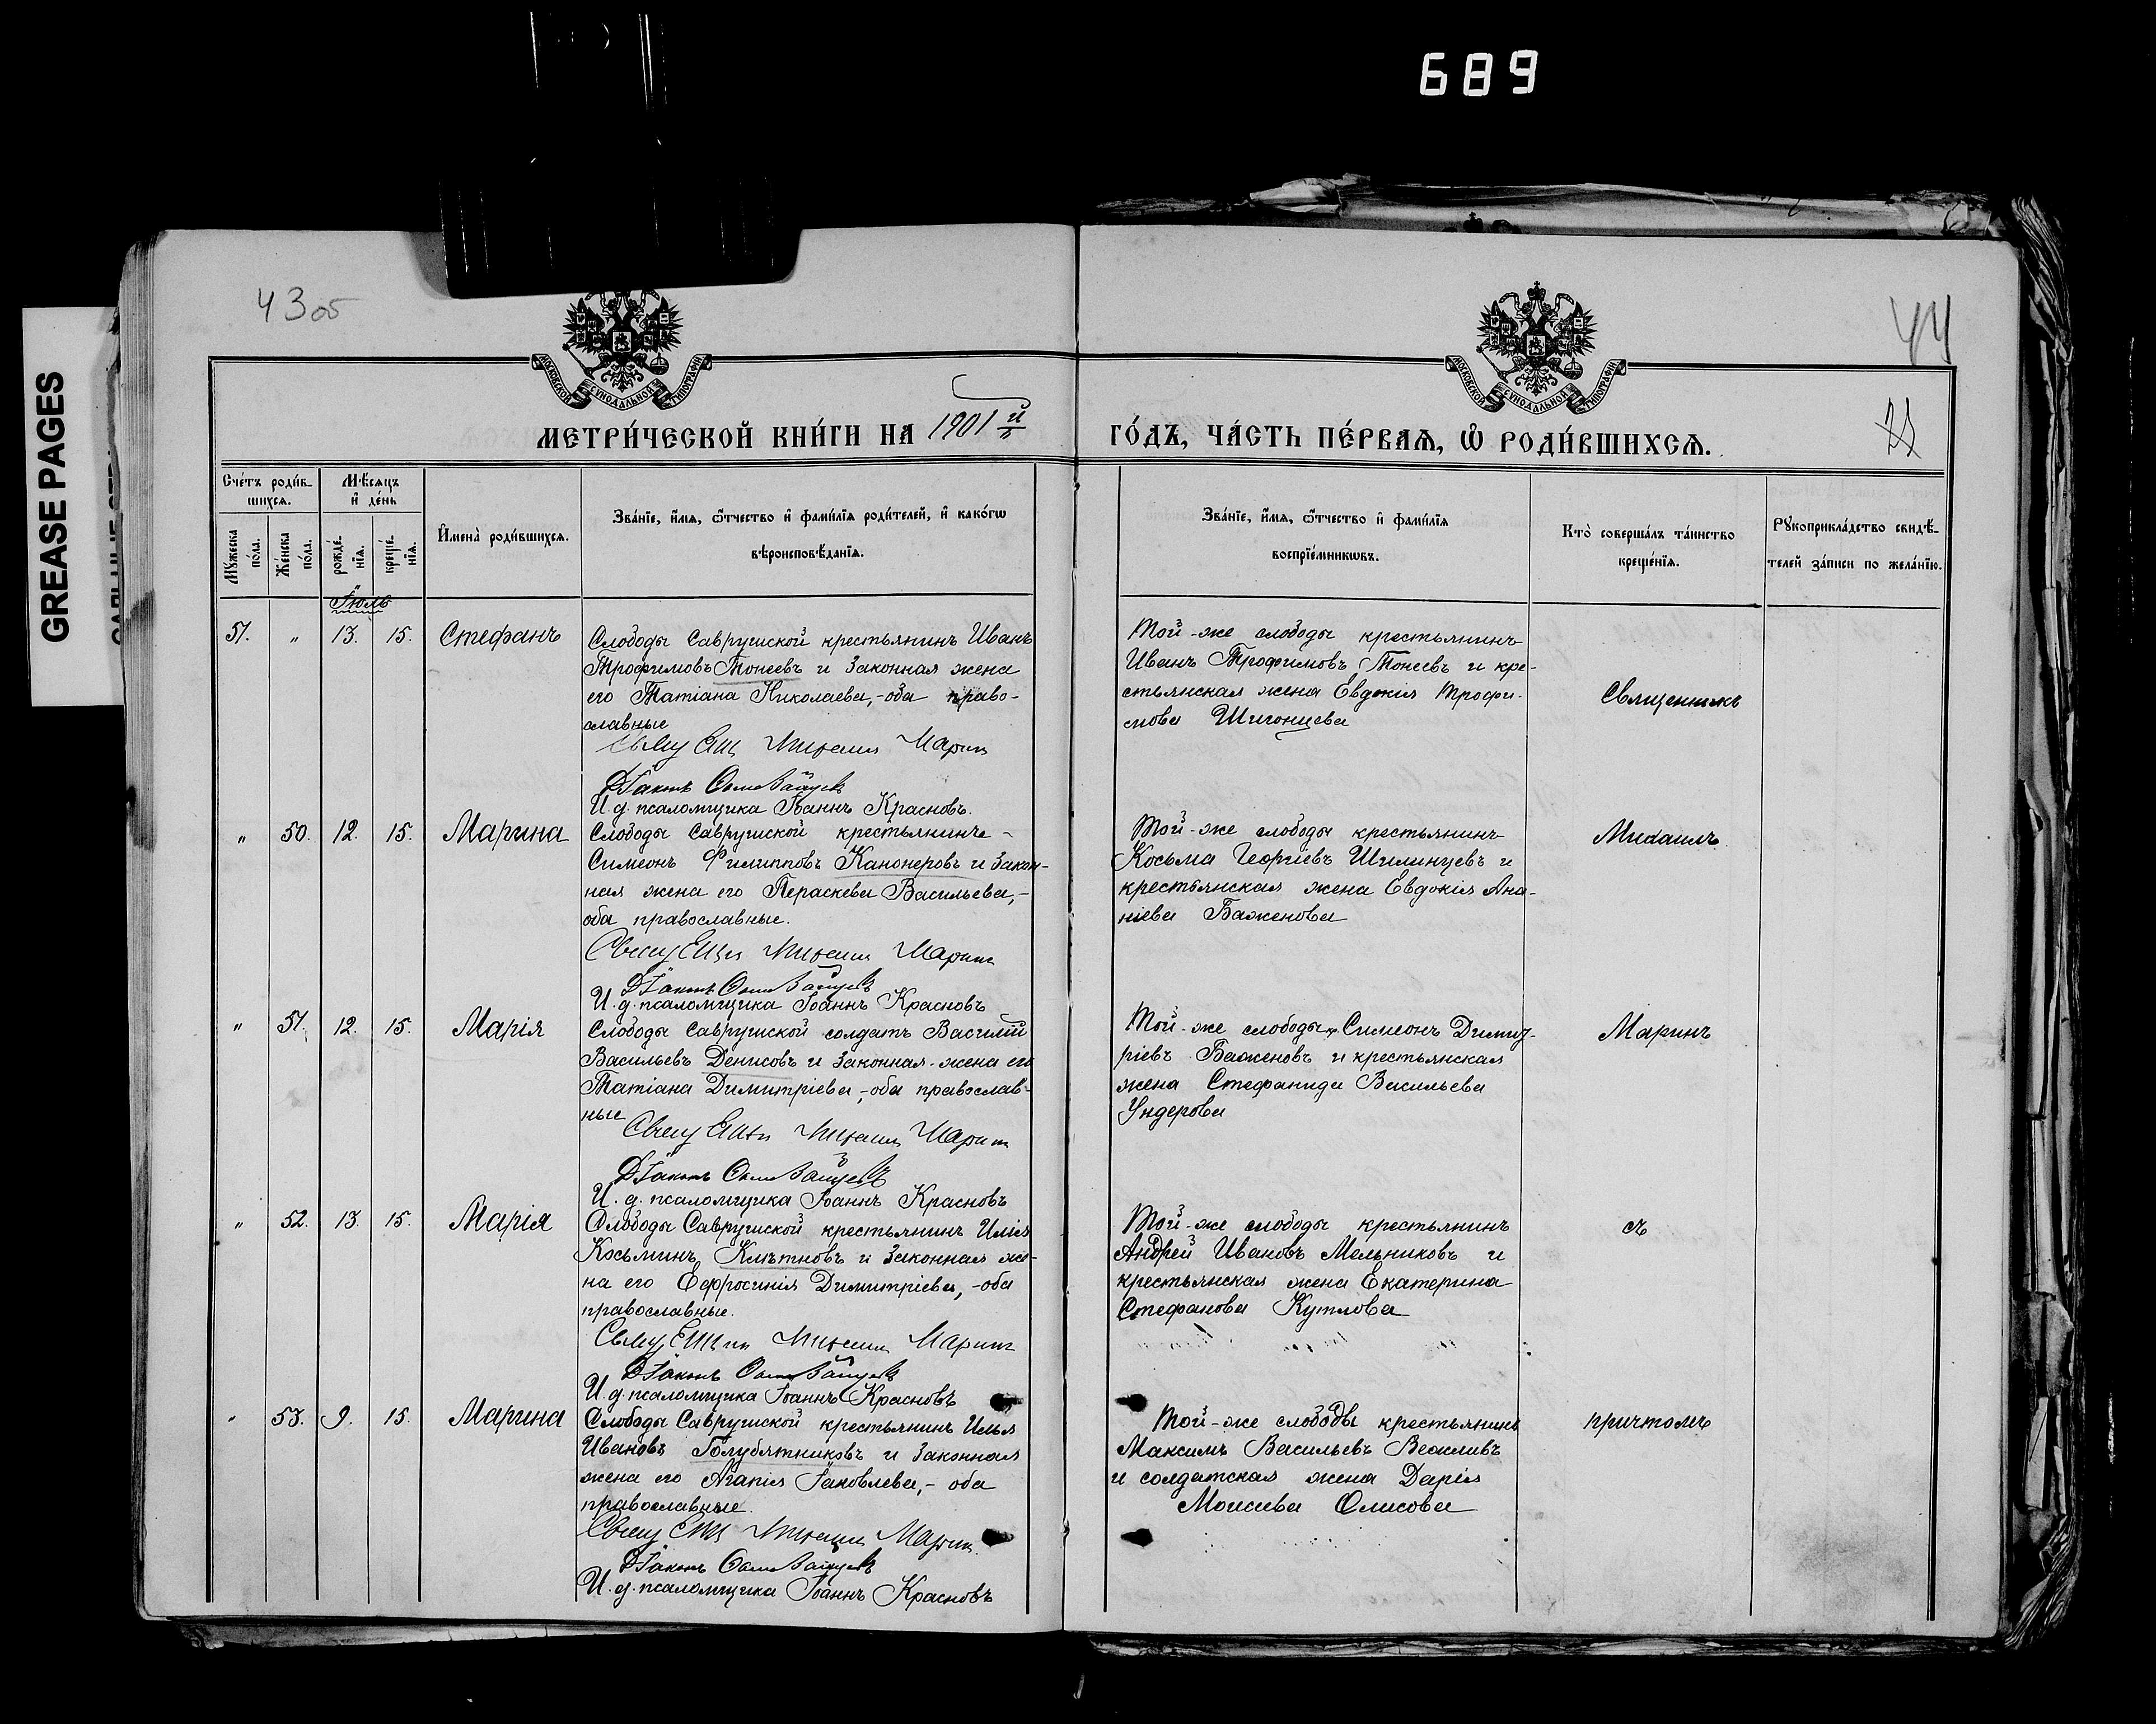 689
GREASE PAGES
43 об
44
МОСКОВСКОЙ СУНОДАЛЬНОЙ ТИПОГРАФІИ
МОСКОВСКОЙ СУНОДАЛЬНОЙ ТИПОГРАФІИ
МЕТРИ́ЧЕСКОЙ КНИ́ГИ НА 1901 й
ГО́ДЪ, ЧА́СТЬ ПЕ́РВАѦ, Ѡ РОДИ́ВШИХСѦ.
Сче́тъ роди́в-
шихсѧ.
Мꙋ́жеска по́ла.
Же́нска по́ла.
Мѣ́сѧцъ
и҆ де́нь
рожде́-
нїѧ.
креще́-
нїѧ.
И҆мена̀ роди́вшихсѧ.
Зва́нїе, и҆́мѧ, ѻ҆́тчество и҆ фами́лїѧ роди́телей, и҆ како́гѡ
вѣроисповѣ́данїѧ.
Зва́нїе, и҆́мѧ, ѻ҆́тчество и҆ фами́лїѧ
воспрїе́мникѡвъ.
Кто̀ соверша́лъ та́инство
креще́нїѧ.
Рꙋкоприкла́дство свидѣ́-
телей за́писи по жела́нїю.
Іюль
51. " 13. 15. Стефанъ
Слободы Саврушской крестьянинъ Иванъ
Трофимовъ Тонеевъ и законная жена
его Татіана Николаева,-оба право-
славные
Дїаконъ
И. д. псаломщика Іоаннъ Красновъ.
Той-же слободы крестьянинъ
Иванъ Трофимовъ Тонеевъ и кре-
стьянская жена Евдокія Трофи-
мова
Священникъ
" 50. 12. 15. Марина
Слободы Саврушской крестьянинъ -
Симеонъ Филипповъ Канонеровъ и закон-
ная жена его Параскева Васильева,-
оба православные.
Дїаконъ
И. д. псаломщика Іоаннъ Красновъ
Той-же слободы крестьянинъ
Косьма Георгіевъ Шилинцевъ и
крестьянская жена Евдокія Ана-
ніева Баженова
Михаилъ
" 51. 12. 15. Марія
Слободы Саврушской солдатъ Василій
Васильевъ Денисовъ и законная жена его
Татіана Димитріева,-оба православ-
ные
Дїаконъ
И. д. псаломщика Іоаннъ Красновъ
Той-же слободы Симеонъ Димит-
ріевъ Баженовъ и крестьянская
жена Стефанида Васильева
Ундерова
Маринъ
" 52. 13. 15. Марія
Слободы Саврушской крестьянинъ Илія
Косьминъ и законная же-
на его Ефросинія Димитріева, -оба
православные.
Дїаконъ
И. д. псаломщика Іоаннъ Красновъ
Той-же слободы крестьянинъ
Андрей Ивановъ Мельниковъ и
крестьянская жена Екатерина
Стефанова Кутлова
съ
" 53. 9. 15. Марина
Слободы Саврушской крестьянинъ Илья
Ивановъ Голубятниковъ и законная
жена его Агапія Іаковлева,- оба
православные.
Дїаконъ
И. д. псаломщика Іоаннъ Красновъ
Той-же слободы крестьянинъ
Максимъ Васильевъ
и солдатская жена Дарія
Моисеева Олисова
причтомъ